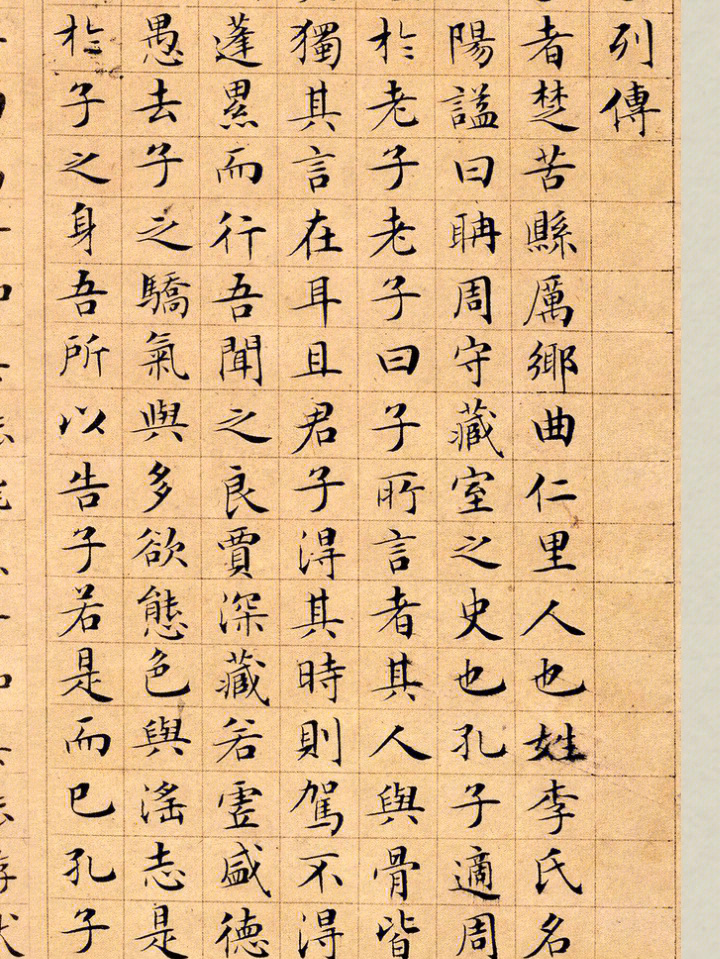 列傳
者楚苦縣厲鄉曲仁里人也姓李氏名
陽謚曰耼周守藏室之史也孔子適周
於老子老子曰子所言者其人與骨皆
獨其言在耳且君子得其時則駕不得
蓬累而行吾聞之良賈深藏若虛盛德
愚去子之驕氣與多欲態色與滛志是
於子之身吾所以告子若是而已孔子